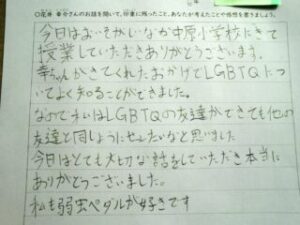 ○花井 幸介さんのお話を聞いて、印象に残ったこと、あなたが考えたことや感想を書きましょう。
今日はおいそがしいなか中原小学校にきて
授業していただきありがとうございます。
幸ちゃんがきてくれたおかげでLGBTQに
ついてよく知ることができました。
なのでわたしはLGBTQの友達ができても他の
友達と同じようにせっしたいなと思いました
今日はとても大切な話をしていただき本当に
ありがとうございました。
私も弱虫ペダルが好きです